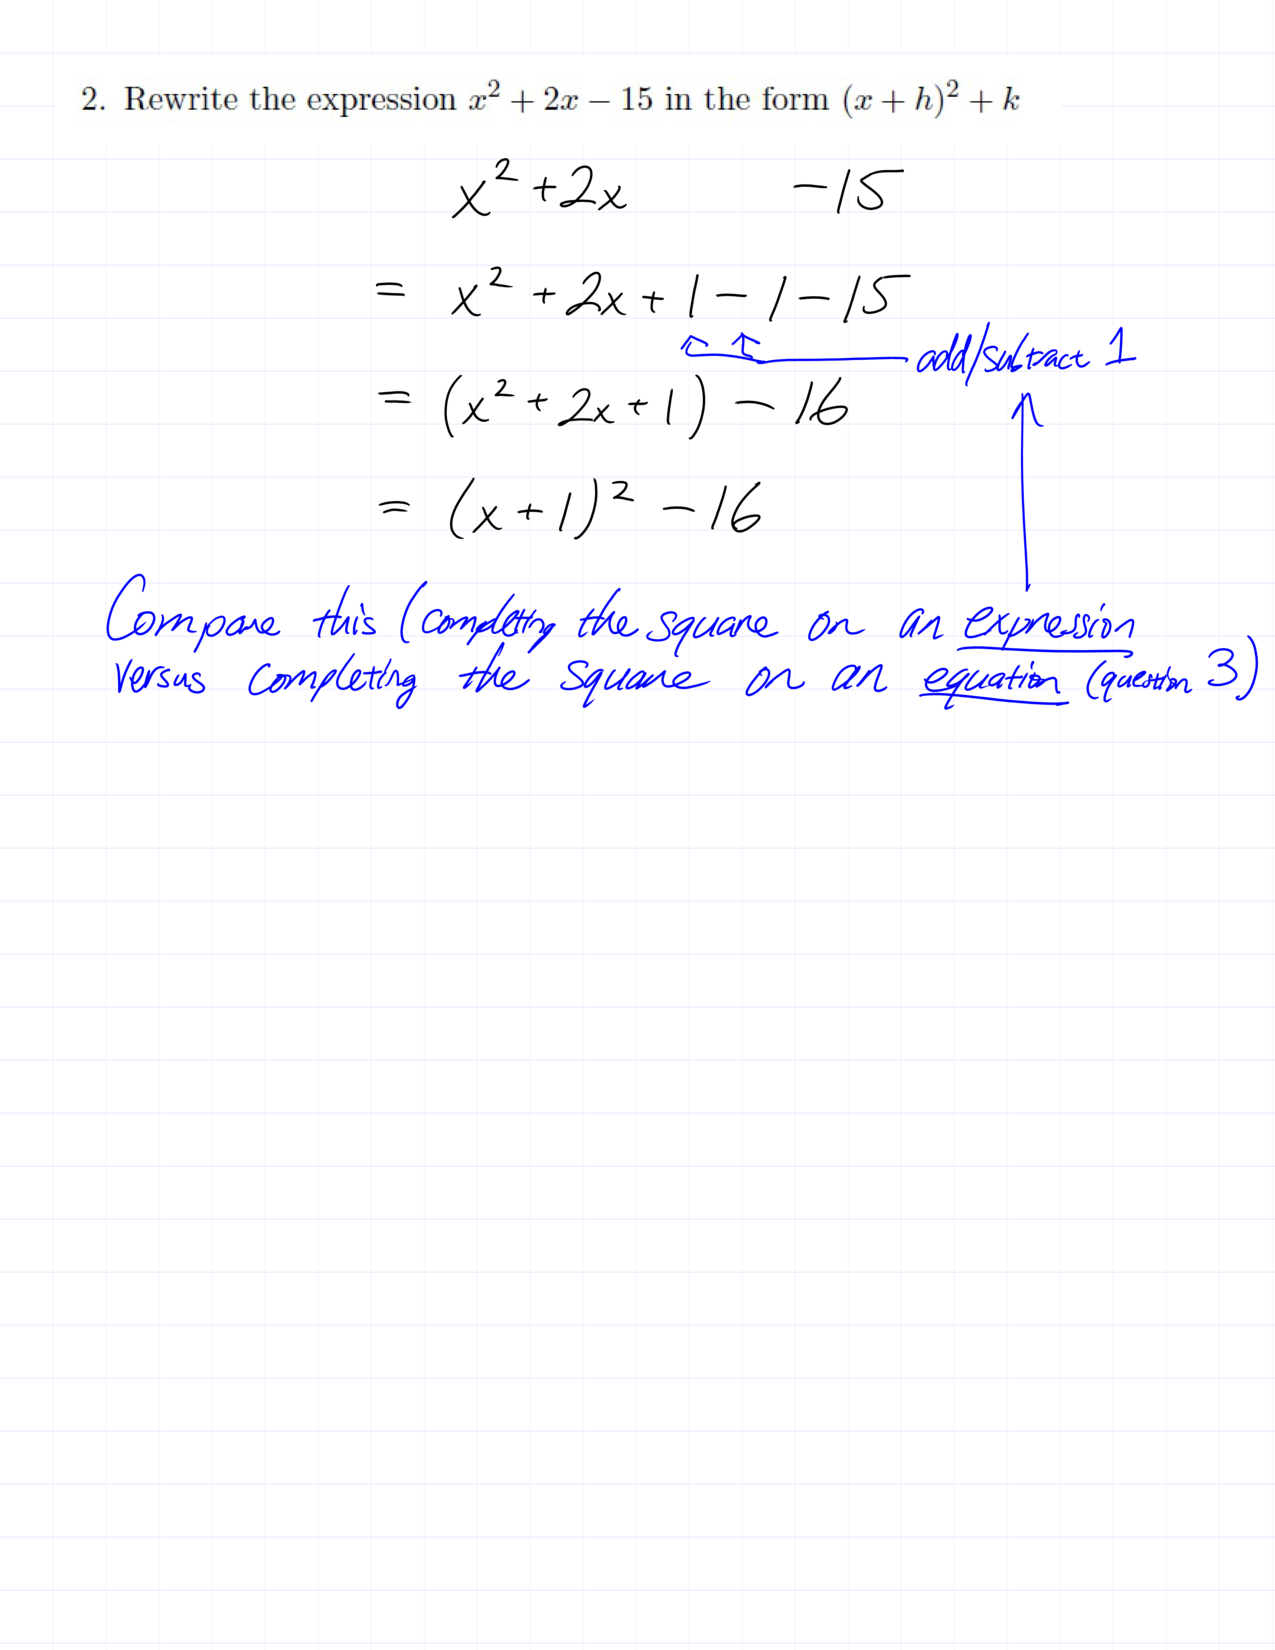 2. Rewrite the expression x² + 2x − 15 in the form (x + h)² + k
x² + 2x −15
= x² + 2x + 1 − 1 − 15
add/subtract 1
= (x² + 2x + 1) − 16
= (x + 1)² − 16
Compare this (completing the square on an expression
versus completing the square on an equation (question 3)